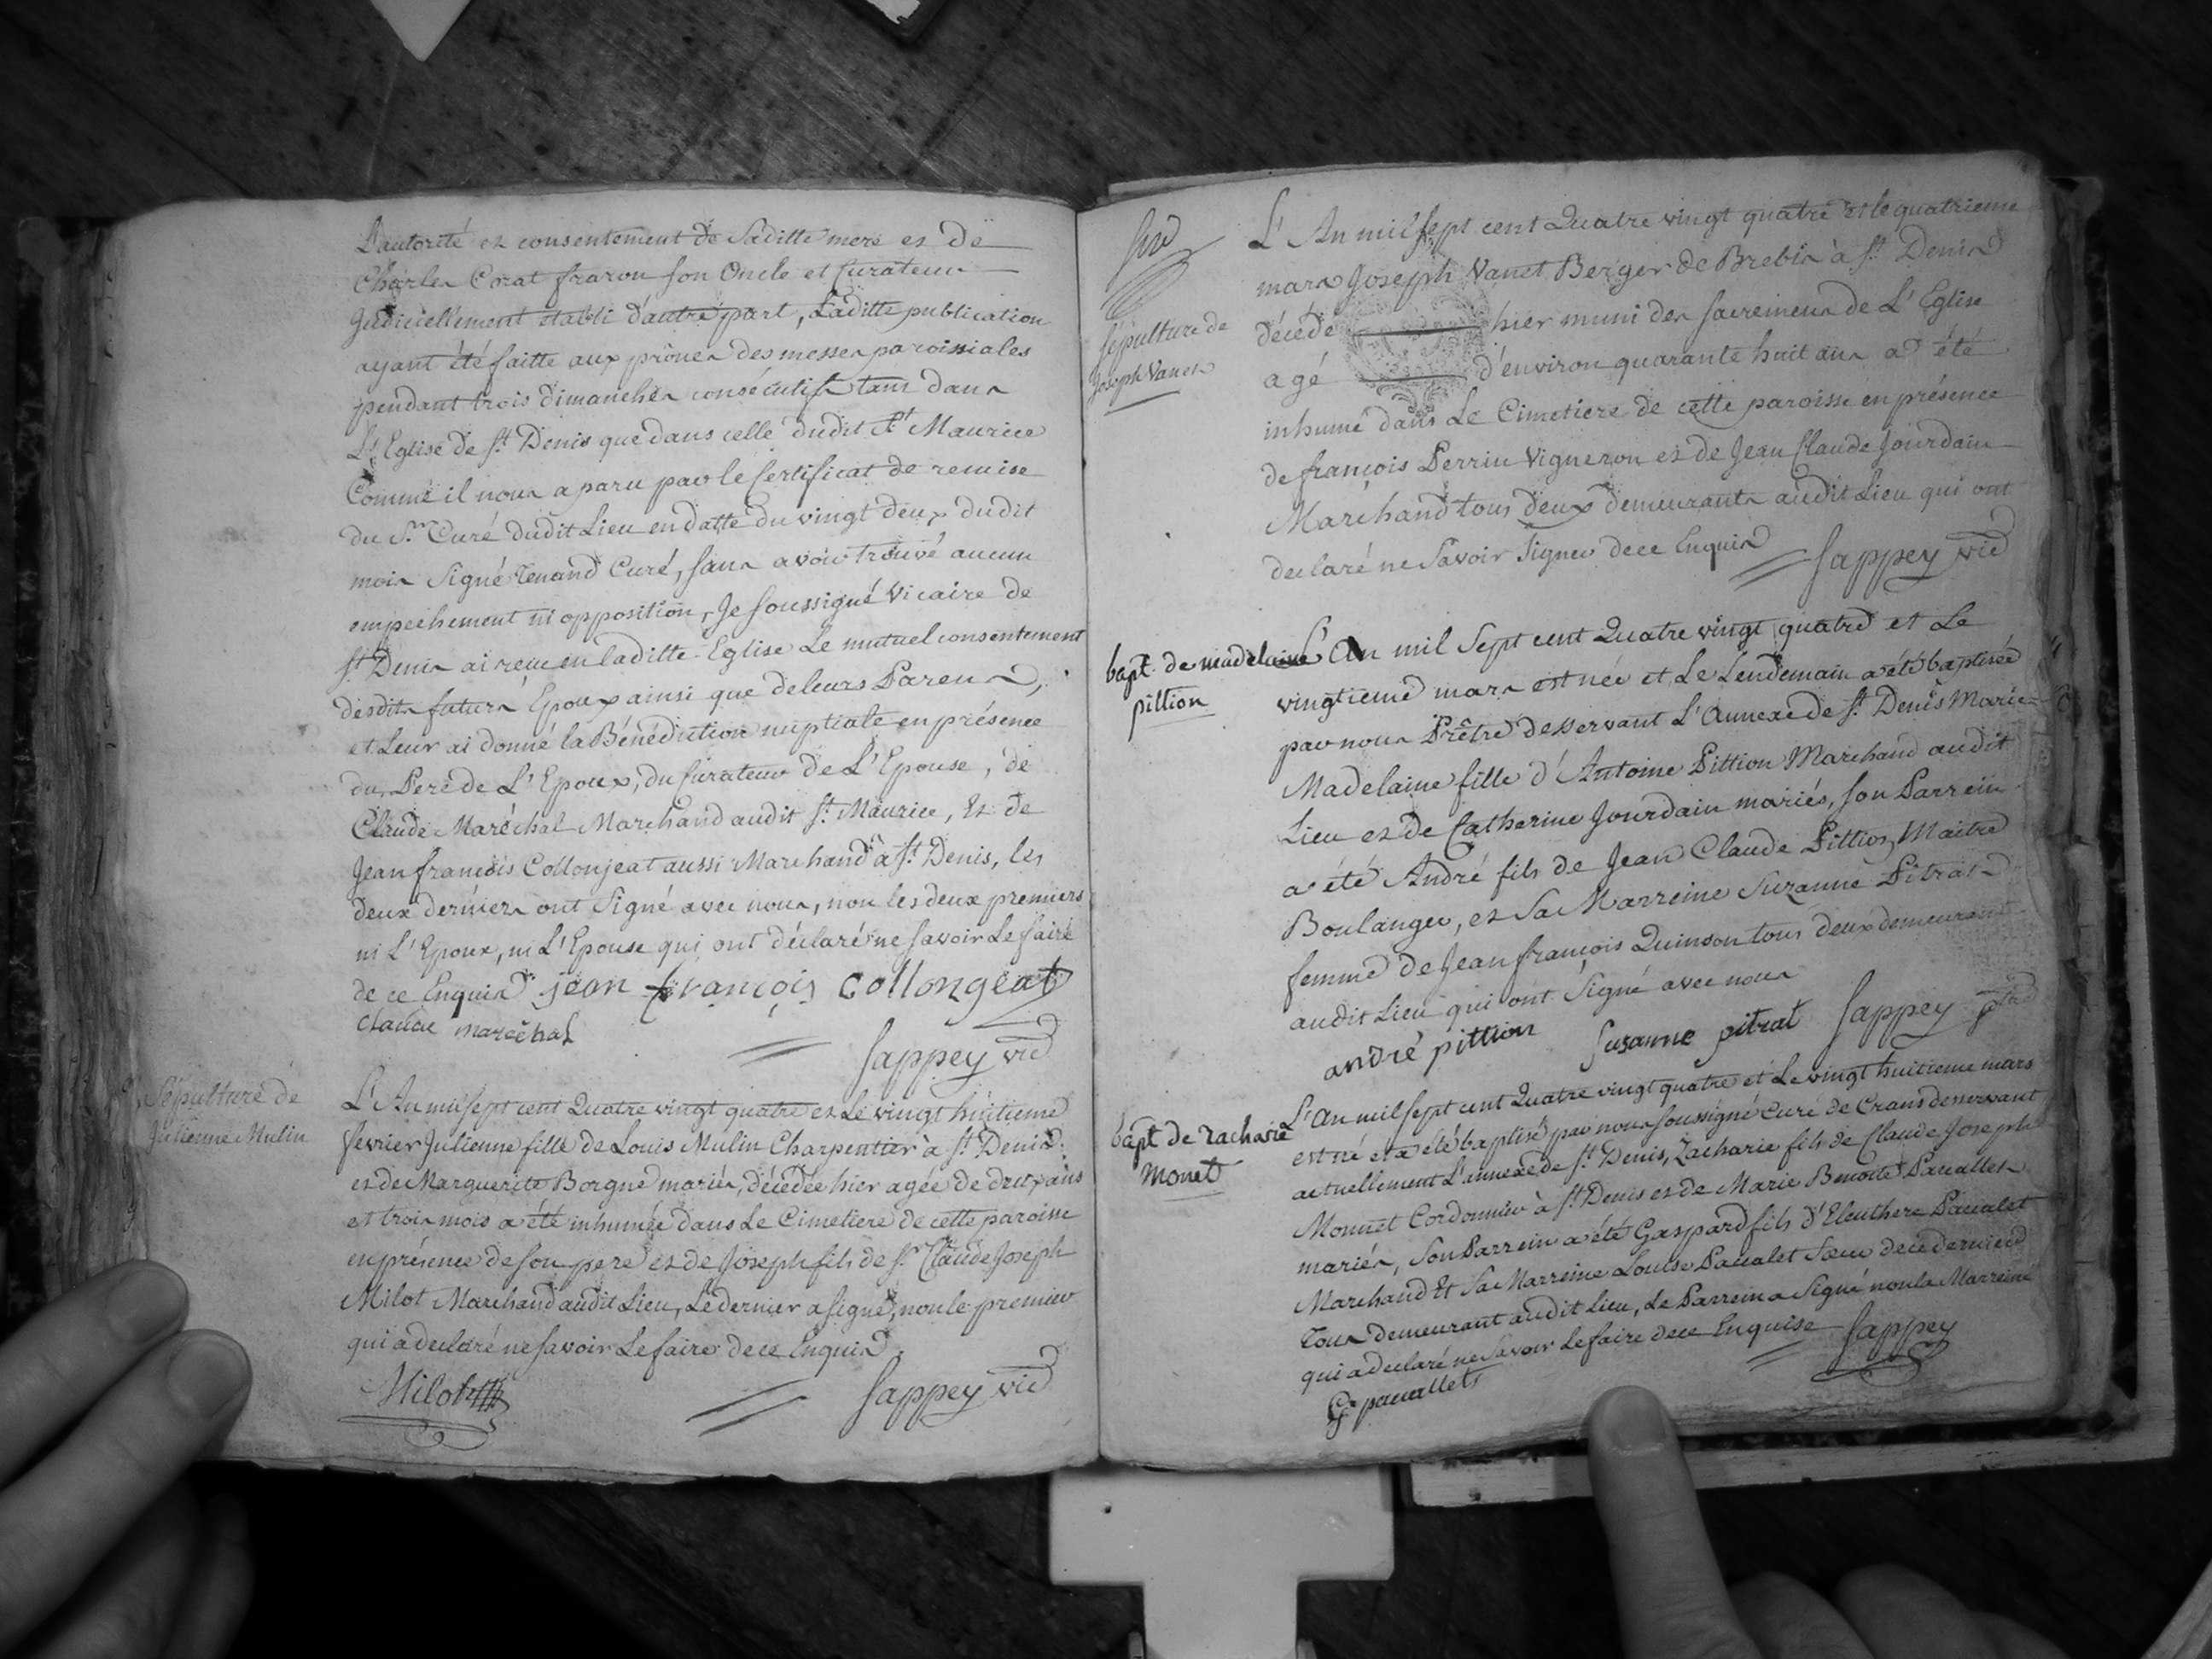 L'autorité et consentement de Saditte mere et de
Charles Corat fraron son Oncle et Curateur
Judiciellement établi d'autre part, Laditte publication
ayant été faitte aux prônes des messes paroissiales
pendant trois dimanches consécutifs tant dans
L'Eglise de St Denis que dans celle dudit St Maurice
Comme il nous a paru par le Certificat de remise
du Sr Curé dudit Lieu en datte du vingt deux dudit
mois Signé Tenand Curé, sans avoir trouvé aucun
empechement ni opposition, Je soussigné Vicaire de
St Denis ai reçu en laditte Eglise Le mutuel consentement
desdits futurs Epoux ainsi que de leurs Parens,
et Leur ai donné la Bénédiction nuptiale en présence
du Pere de L'Epoux, du Curateur de L'Epouse, de
Claude Maréchal Marchand audit St Maurice, Et de
Jean francois Collonjeat aussi Marchand à St Denis, les
deux derniers ont Signé avec nous, non les deux premiers
ni L'Epoux, ni L'Epouse qui ont déclaré ne savoir Le faire
de ce Enquis jean françois collongeat
claude maréchal
Sappey vic
Sépulture de
Julienne Mulin
L'An mil sept cent Quatre vingt quatre et Le vingt huitieme
fevrier Julienne fille de Louis Mulin Charpentier à St Denis
et de Marguerite Borgne mariés, décédée hier agée de deux ans
et trois mois a été inhumée dans Le Cimetiere de cette paroisse
en présence de son pere et de Joseph fils de Sr Claude Joseph
Milot Marchand audit Lieu, Le dernier a signé, non le premier
qui a declaré ne savoir Le faire de ce Enquis.
Milot
Sappey vic
Sépulture de
Joseph Vanet
L'An mil sept cent Quatre vingt quatre et le quatrieme
mars Joseph Vanet Berger de Brebis à St Denis
décédé hier muni des sacremens de L'Eglise
agé d'environ quarante huit ans a été
inhumé dans Le Cimetiere de cette paroisse en présence
de françois Perrin Vigneron et de Jean Claude Jourdain
Marchand tous deux demeurants audit Lieu qui ont
declaré ne Savoir Signer de ce Enquis
Sappey vic
bapt. de madelaine
pittion
L'An mil Sept cent Quatre vingt quatre et Le
vingtieme mars est née et Le Lendemain a été baptisée
par nous Prêtre desservant L'Annexe de St Denis Marie
Madelaine fille d'Antoine Pittion Marchand audit
Lieu et de Catherine Jourdain mariés, son Parrein
a été André fils de Jean Claude Pittion Maitre
Boulanger, et Sa Marreine Suzanne Pitrat
femme de Jean françois Quinson tous deux demeurant
audit Lieu qui ont Signé avec nous
andré pittion Susanne pitrat Sappey
bapt de zacharie
monet
L'An mil sept cent Quatre vingt quatre et Le vingt huitieme mars
est né et a été baptisé par nous soussigné Curé de Crans desservant
actuellement L'annexe de St Denis, Zacharie fils de Claude Joseph
Monnet Cordonnier à St Denis et de Marie Benoite Paualet
mariés, Son Parrein a été Gaspard fils d'Eleuthere Paualet
Marchand Et Sa Marreine Louise Paualet Soeur de ce dernier
Tous demeurant audit Lieu, Le Parrein a Signé non la Marreine
qui a declaré ne Savoir Le faire de ce Enquise Sappey
G paualet